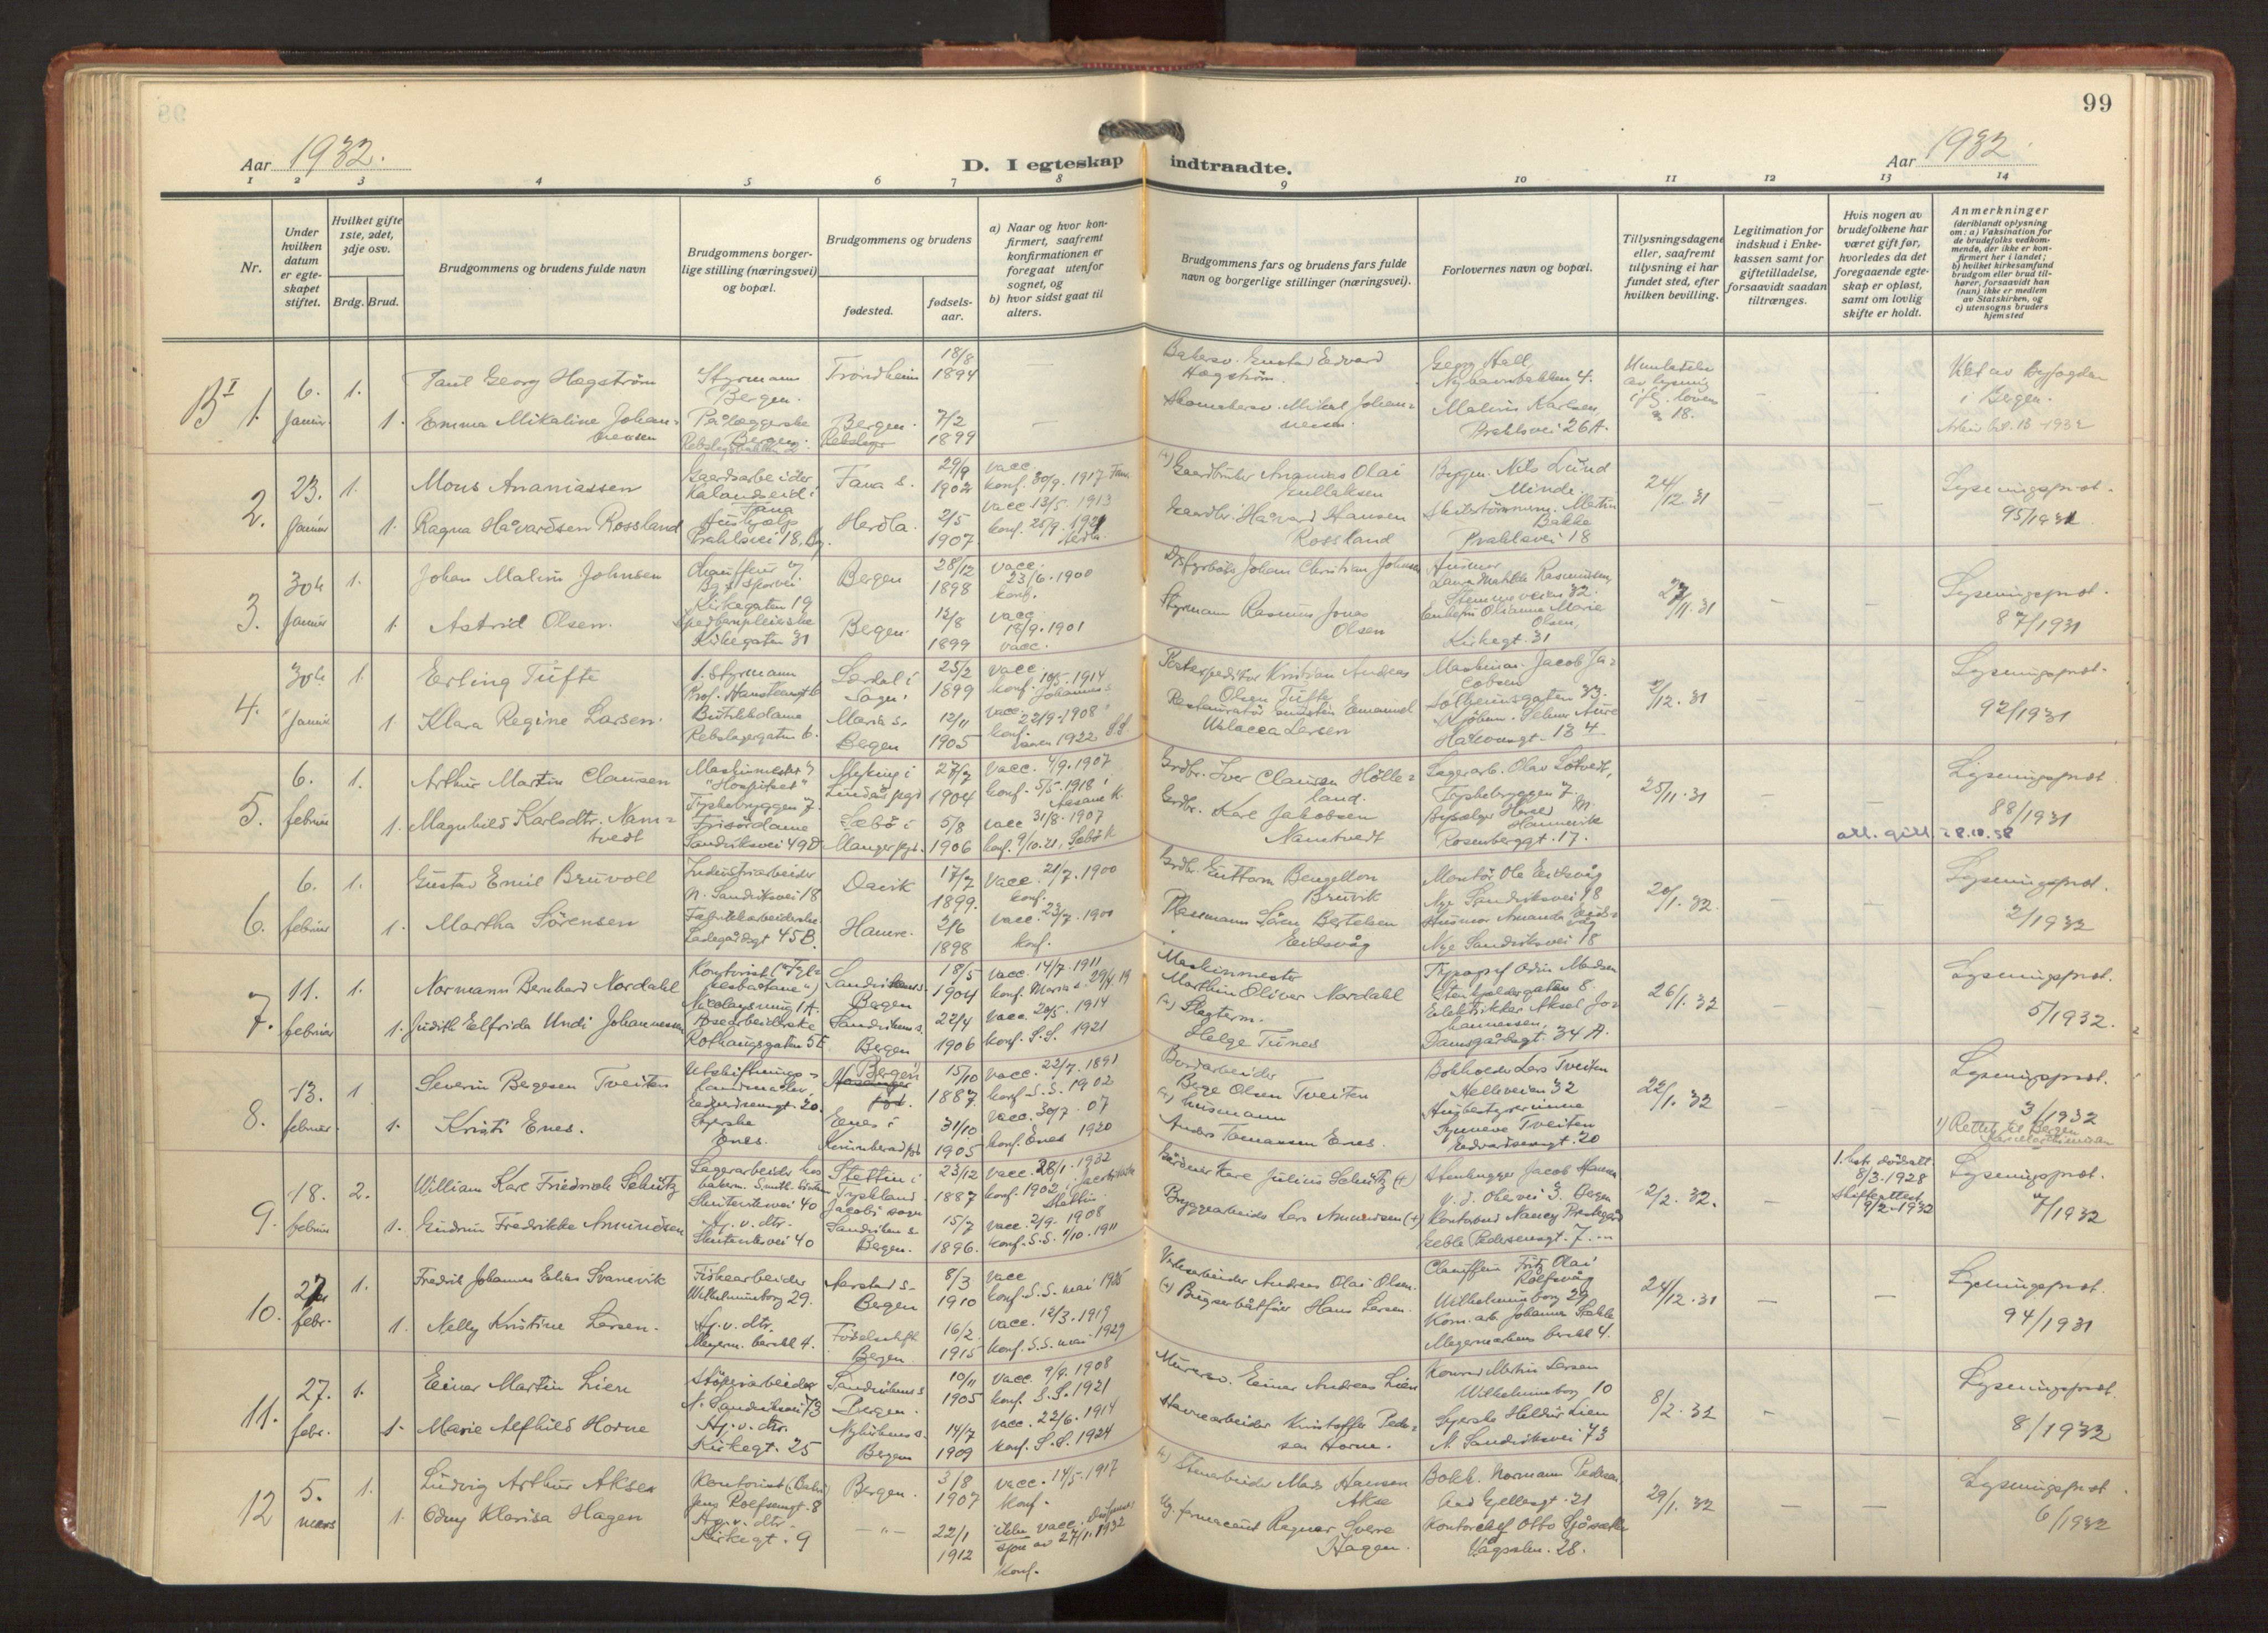 99
Aar 1932.
D. I egteskap indtraadte.
Aar 1932
1 2 3 4 5 6 7 8 9 10 11 12 13 14
Nr.
Under hvilken datum er egte-skapet stiftet.
Hvilket gifte 1ste, 2det, 3dje osv.
Brdg. Brud.
Brudgommens og brudens fulde navn
Brudgommens borger-lige stilling (næringsvei) og bopæl.
Brudgommens og brudens
fødested.
fødsels-aar.
a) Naar og hvor kon-firmert, saafremt konfirmationen er foregaat utenfor sognet, og
b) hvor sidst gaat til alters.
Brudgommens fars og brudens fars fulde navn og borgerlige stillinger (næringsvei).
Forlovernes navn og bopæl.
Tillysningsdagene eller, saafremt tillysning ei har fundet sted, efter hvilken bevilling.
Legitimation for indskud i Enke-kassen samt for giftetilladelse, forsaavidt saadan tiltrænges.
Hvis nogen av brudefolkene har været gift før, hvorledes da det foregaaende egte-skap er opløst, samt om lovlig skifte er holdt.
Anmerkninger (deriblandt oplysning om: a) Vaksination for de brudefolks vedkom-mende, der ikke er kon-firmert her i landet; b) hvilket kirkesamfund brudgom eller brud til-hører, forsaavidt han (hun) ikke er medlem av Statskirken, og c) utensogns bruders hjemsted
1. 6. 1. Paul Georg Hegström Styrmann Bergen. Trondheim 18/8 1894
Bakersv. Gustav Edvard Hegström. Georg Hall, Nyhavnsbakken 4.
Viet av Byfogden i Bergen.
Januar 1. Emma Mikaline Johan=nessen Bergen. Bergen. 7/2 1899
Malvin Karlsen, Prahlsvei 26A. § 18.
2. 23. 1. Mons Ananiassen Gaardsarbeider Kalandseid i Fana Fana s. 29/9 1902 vacc. konf. 30/9. 1917 Fana
Gaardbruker Ananias Olai Byggm. Nils Lund Minde. 24/12 31 Lysningsprot. 95/1931
Januar 1. Ragna Håvardsen Rossland Hushjelp Prahlsvei 18, Bg. Herdla. 2/5 1907 vacc 13/5. 1913 konf. 25/9. 1921
Gaardbr. Håvard Hansen Rossland Martin Bakke Prahlsvei 18
3. 30te 1. Johan Malvin Johnsen Chauffeur v/ Bgs. Sporvei. Kirkegaten 19 Bergen 28/12 1898 vacc. 23/6. 1900 konf.
Johan Christian Johnsen Husmor Laura Matilde Rasmussen, Stemmeveien 32. 27/11. 31 Lysningsprot. 87/1931
Januar 1. Astrid Olsen. Spedbarnpleierske Kirkegaten 31 Bergen. 12/8 1899 vacc 18/9. 1901
Styrmann Rasmus Jonas Olsen Enkefru Olianna Marie Olsen, Kirkegt. 31
4. 30te 1. Erling Tufte 1. Styrmann Prof. Hansteensgt 6 Lærdal i Sogn 25/2 1899 vacc. konf. 1914 Johannes s
Kristian Andreas Olsen Tufte Maskinas. Jacob Ja=cobsen Solheimsgaten 33. 2/12. 31 Lysningsprot. 92/1931
Januar 1 Klara Regine Larsen. Butikkdame Rebslagergaten 6. Maria s. Bergen 12/11 1905 vacc. 22/9. 1908 konf. 1922 S.S
Restauratør Emanuel Larsen Kjøbm. Selmer Aure
5. 6. 1. Arthur Martin Clausen Maskinmester "Hospitset" Tyskebryggen 7. Myking i Lindås pgd 27/7 1904 vacc. 4/9. 1907 konf. 5/5. 1918 Aasane K.
Grdbr. Iver Clausen Hölle=land. Lagerarb. Olav Søtvedt, Tyskebryggen 7. 25/11. 31 Lysningsprot. 88/1931
februar 1. Magnhild Karlsdtr. Nam=tvedt Frisördame Sandviksvei 49D Sæbö i Manger pgd. 5/8 1906 vacc 31/8. 1907 konf. 9/10. 21, Sæbö k
Grdbr. Karl Jakobsen Namtvedt Rosenberggt. 17.
att. gitt. 28.10.58
6. 6. 1. Gustav Emil Bruvoll Industriarbeider N. Sandviksvei 18 Davik 17/7 1899. Vacc. 21/7. 1900 konf.
Grdbr. Guttorm Bengtson Bruvik Montör Ole Eidsvåg Nye Sandviksvei 18 20/1. 32. Lysningsprot. 2/1932
februar 1. Martha Sörensen Fabrikkarbeiderske Ladegårdsgt 45B. Hamre. 2/6 1898 vacc. 23/7. 1900 konf.
Plassmann Sören Bertelsen Eidsvåg Husmor Amanda Eids=våg Nye Sandviksvei 18
7. 11. 1. Normann Bernhard Nordahl Kontorist Nicolaysmug 1A. Sandvikens s. Bergen 18/5 1904 vacc. 14/7. 1911 konf. Maria s. 29/4. 19
Maskinmester Marthin Oliver Nordahl Typograf Odin Madsen Stenkjeldergaten 8. 26/1. 32 Lysningsprot. 5/1932.
februar 1. Judith Elfrida Undi Johannessen Rothaugsgaten 5E Sandvikens s. Bergen 22/4 1906 vacc. 20/5. 1914 konf. S.S. 1921
Helge Tunes Elektriker Aksel Jo=hannessen, Damsgårdsgt. 34 A.
8. 13. 1 Severin Bergesen Tveiten Utskiftnings=landmåler, Edvardsensgt. 20. Bergen 15/10 1887. vacc. 22/7. 1891 konf. S.S. 1902
Bordarbeider Berge Olsen Tveiten Bokholder Lars Tveiten Helleveien 32 22/1. 32 Lysningsprot. 3/1932
februar. 1. Kristi Enes. Syerske Enes. Enes i Kvinnherad pgd 31/10 1905 vacc. 30/7. 07 konf. Enes 1920
husmann Anders Tomassen Enes. Husbestyrerinne Synneve Tveiten Edvardsensgt. 20
1) Rettet til Bergen
9. 18. 2. William Karl Friedrich Schütz Lagerarbeider hos Skuteviksvei 40 Stettin i Tyskland Jacobi sogn 23/12 1887 vacc. 28/1. 1932 konf. 1902, Stettin.
Gårdner Karl Julius Schütz (+) Stenhugger Jacob Hansen 2/2. 32. 1. hstr. död att. 8/3. 1928 Skifteattest 9/2-1932 Lysningsprot. 7/1932
februar 1. Gudrun Fredrikke Amundsen Hj. v. dtr. Skuteviksvei 40 Sandviken s. Bergen. 15/7 1896. vacc. 2/9. 1908 konf. S.S. 1/10. 1911
Bryggearbeider Lars Amundsen (+) Kontorbud Nancy
10. 27de 1. Fredrik Johannes Elias Svanevik Fiskearbeider Wilhelmineborg 29. Aarstad s. Bergen 8/3 1910 vacc konf. S.S. mai 1925
Andreas Olai Olsen. Chauffeur Fritz Olai Rolfsvåg Wilhelmineborg 29 24/12. 31 Lysningsprot. 94/1931
febr. 1. Nelly Kristine Larsen. Hj. v. dtr. Bergen 16/2. 1915 vacc. 12/3. 1919 konf. S.S. mai 1929
(+) Bugserbåtfører Hans Larsen. Kom. arb. Johannes
11. 27. 1. Einar Martin Lien Stöperiarbeider N. Sandviksvei 73 Sandvikens s Bergen. 10/11 1905 vacc. 9/9. 1908 konf. S.S. 1921
Murersv. Einar Andreas Lien Konrad Martin Larsen Wilhelmineborg 10 8/2. 32 Lysningsprot. 8/1932
febr. 1. Marie Alfhild Horne Hj. v. dtr. Kirkegt. 25 Nykirkens s. Bergen 14/7 1909 vacc. 22/6. 1914 konf. S.S. 1924
Havnearbeider Kristoffer Peder=sen Horne. Syerske Heldur Lien N. Sandviksvei 73
12 5. 1. Ludvig Arthur Akse Kontorist Jens Rolfsensgt. 8 Bergen. 3/8 1907 vacc. 14/5. 1917 konf.
(+) Stenarbeider Mads Hansen Akse Bokh. Normann Pedersen Aad Gjellesgt. 21 29/1. 32 Lysningsprot. 6/1932
mars 1. Odny Klarisa Hagen Hj. v. dtr. Kirkegt. 9 22/1 1912 27/1. 1932 konf.
farmaceut Ragnar Sverre Hagen. Kontorchef Otto